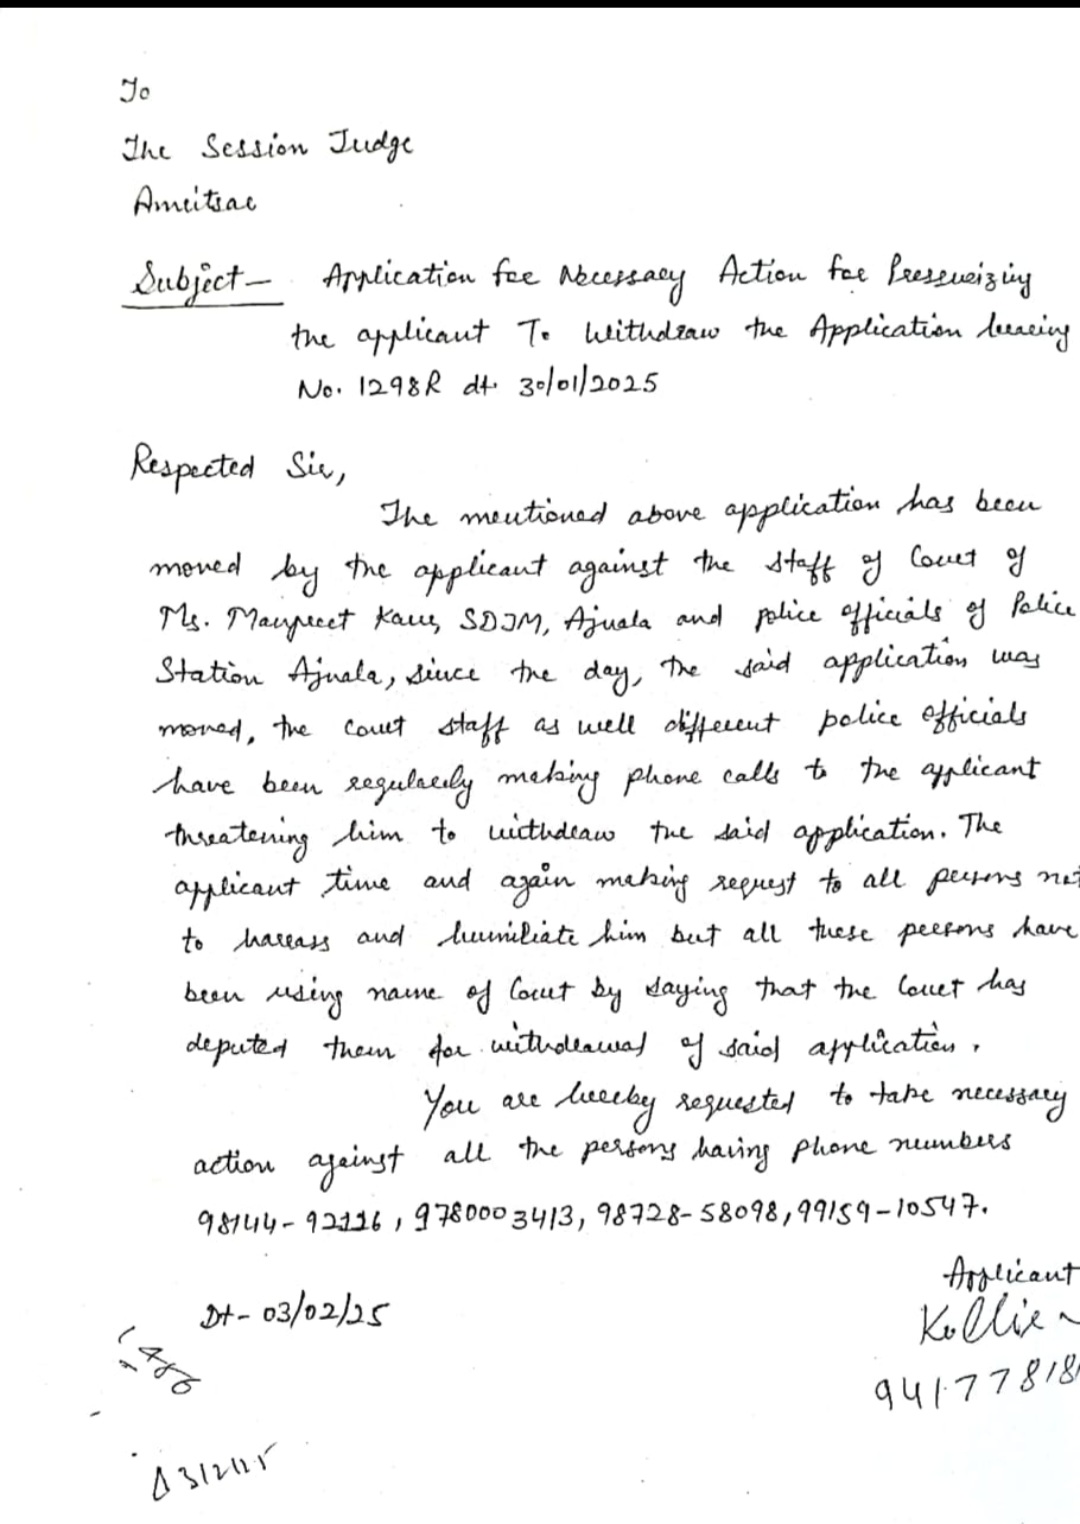 To
The Session Judge
Amritsar
Subject - Application for Necessary Action for Pressurizing
the applicant To Withdraw the Application bearing
No. 1298R dt. 30/01/2025
Respected Sir,
The mentioned above application has been
moved by the applicant against the staff of Court of
Ms. Manpreet Kaur, SDJM, Ajnala and police officials of Police
Station Ajnala, since the day, the said application was
moved, the court staff as well different police officials
have been regularly making phone calls to the applicant
threatening him to withdraw the said application. The
applicant time and again making request to all persons not
to harrass and humiliate him but all these persons have
been using name of Court by saying that the Court has
deputed them for withdrawal of said application.
You are hereby requested to take necessary
action against all the persons having phone numbers
98144-92116, 9780003413, 98728-58098, 99159-10547.
Applicant
Dt- 03/02/25
94177818
3/2/25